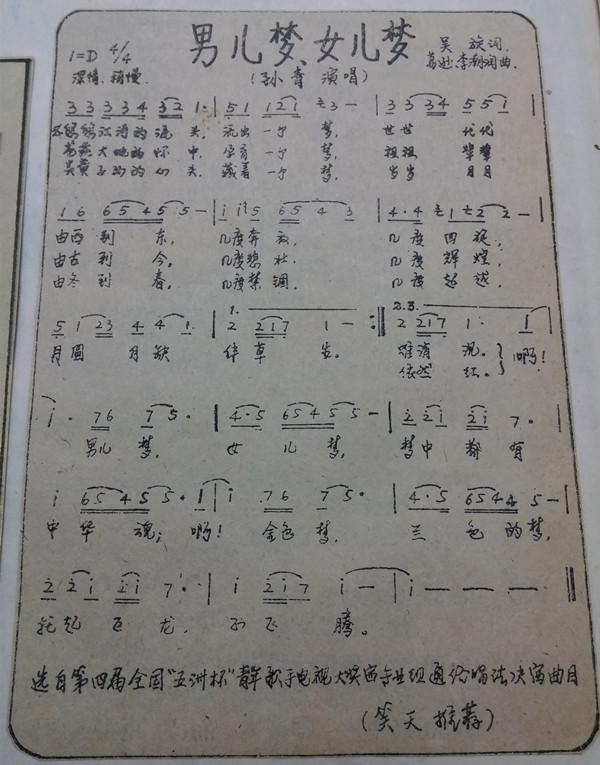 男儿梦、女儿梦
1=D 4/4
深情、稍慢
吴旋词
李潮润曲
(孙青演唱)
3 3 3 3 4 3 2 1· | 5 1 1 2 i 3 — | 3 3 3 4 5 5 i
江涛的源头, 流出一个梦, 世世代代
苍茫大地的怀中, 孕育一个梦, 祖祖辈辈
炎黄子的心头, 藏着一个梦, 岁岁月月
1 6 6 5 4 5 5 —
由西到东, 几度奔放, 几度回旋,
由古到今。 几度悲壮, 几度辉煌,
由冬到春。 几度禁锢, 几度超越,
1. 2.3.
5 1 2 3 4 4 1 | 2 2 1 7 1 — :‖ 2 2 1 7 1· 1
月圆月缺伴草生。 难消沉。 啊!
依然红。
i· 7 6 7 5· | 4·5 6 5 4 5 5 — | 2 2 i 2 i 7·
男儿梦, 女儿梦, 梦中都有
i 6 5 4 5 5· 1 | i 7 6 7 5· | 4·5 6 5 4 4 5 —
中华魂; 啊! 金色梦, 兰色的梦,
2 2 i 2 i 7· | i 2 i 7 i — | i — — — ‖
托起巨龙, 飞腾。
选自第四届全国“五洲杯”青年歌手电视大奖赛专业组通俗唱法决赛曲目
(笑天推荐)